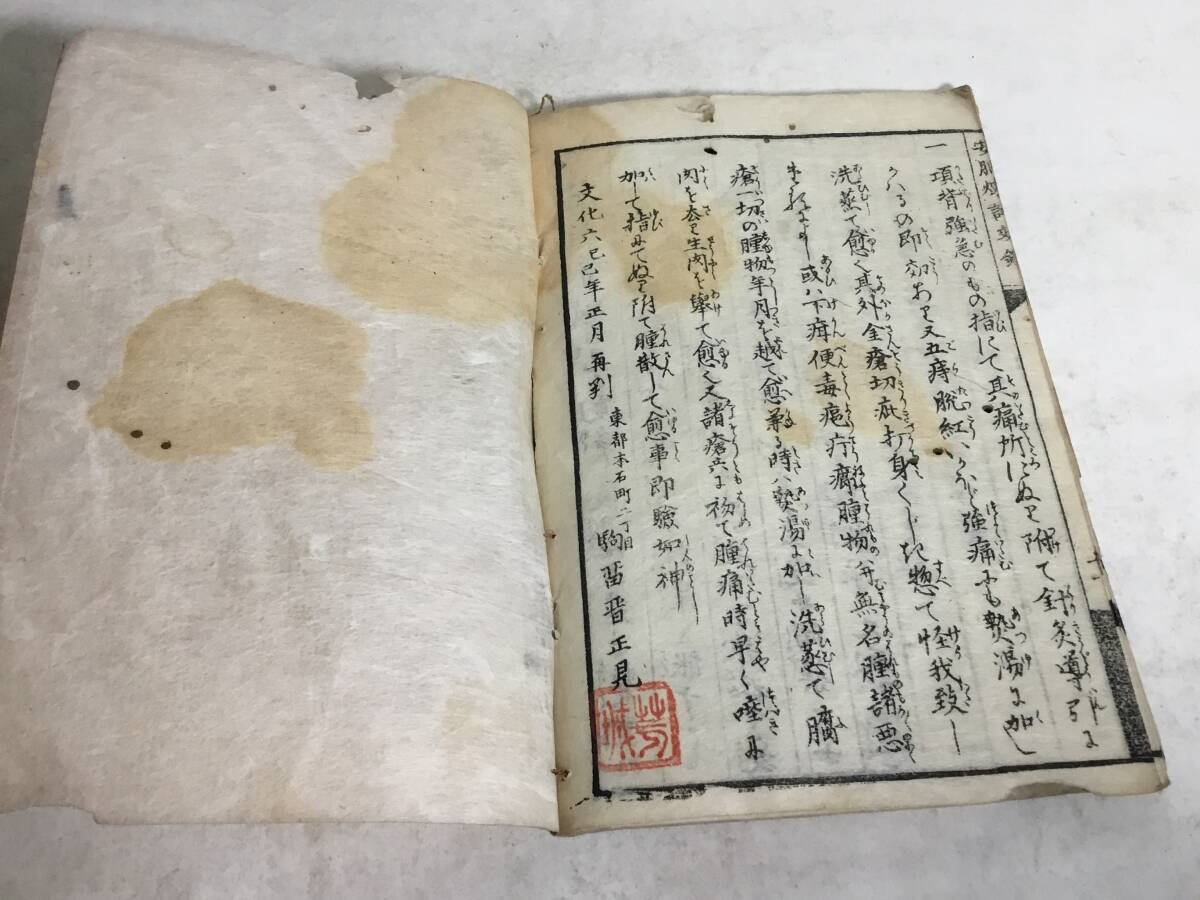 一 項背強急のもの指にて其痛所にぬり附て針灸導引に
かハるの即効あり又五痔脱紅、強痛にも𤍠湯に加し
洗蒸て愈く其外金瘡切疵打身くじき惣て怪我致し
或ハ下疳便毒疤疔癤腫物并無名腫諸悪
瘡一切の腫物年月を越て愈兼る時ハ𤍠湯に加し洗蒸て腐
肉を去り生肉を挙て愈く又諸瘡共に初て腫痛時早く唾に
加して指にてぬり附て腫散して愈事即験如神
文化六己巳年正月再判
東都本石町二丁目
駒 晋正見